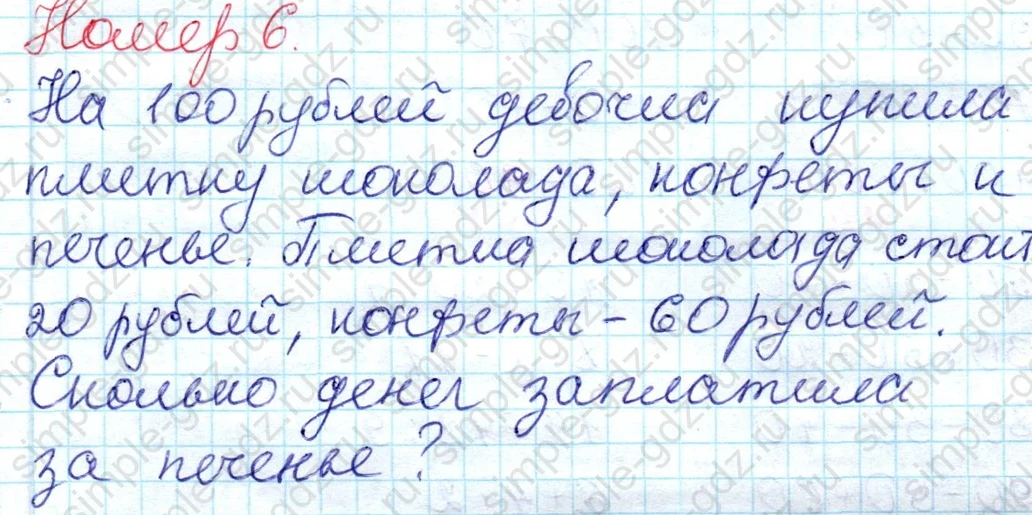 Номер 6.
На 100 рублей девочка купила
плитку шоколада, конфеты и
печенье. Плитка шоколада стоит
20 рублей, конфеты – 60 рублей.
Сколько денег заплатила
за печенье?
simple-gdz.ru